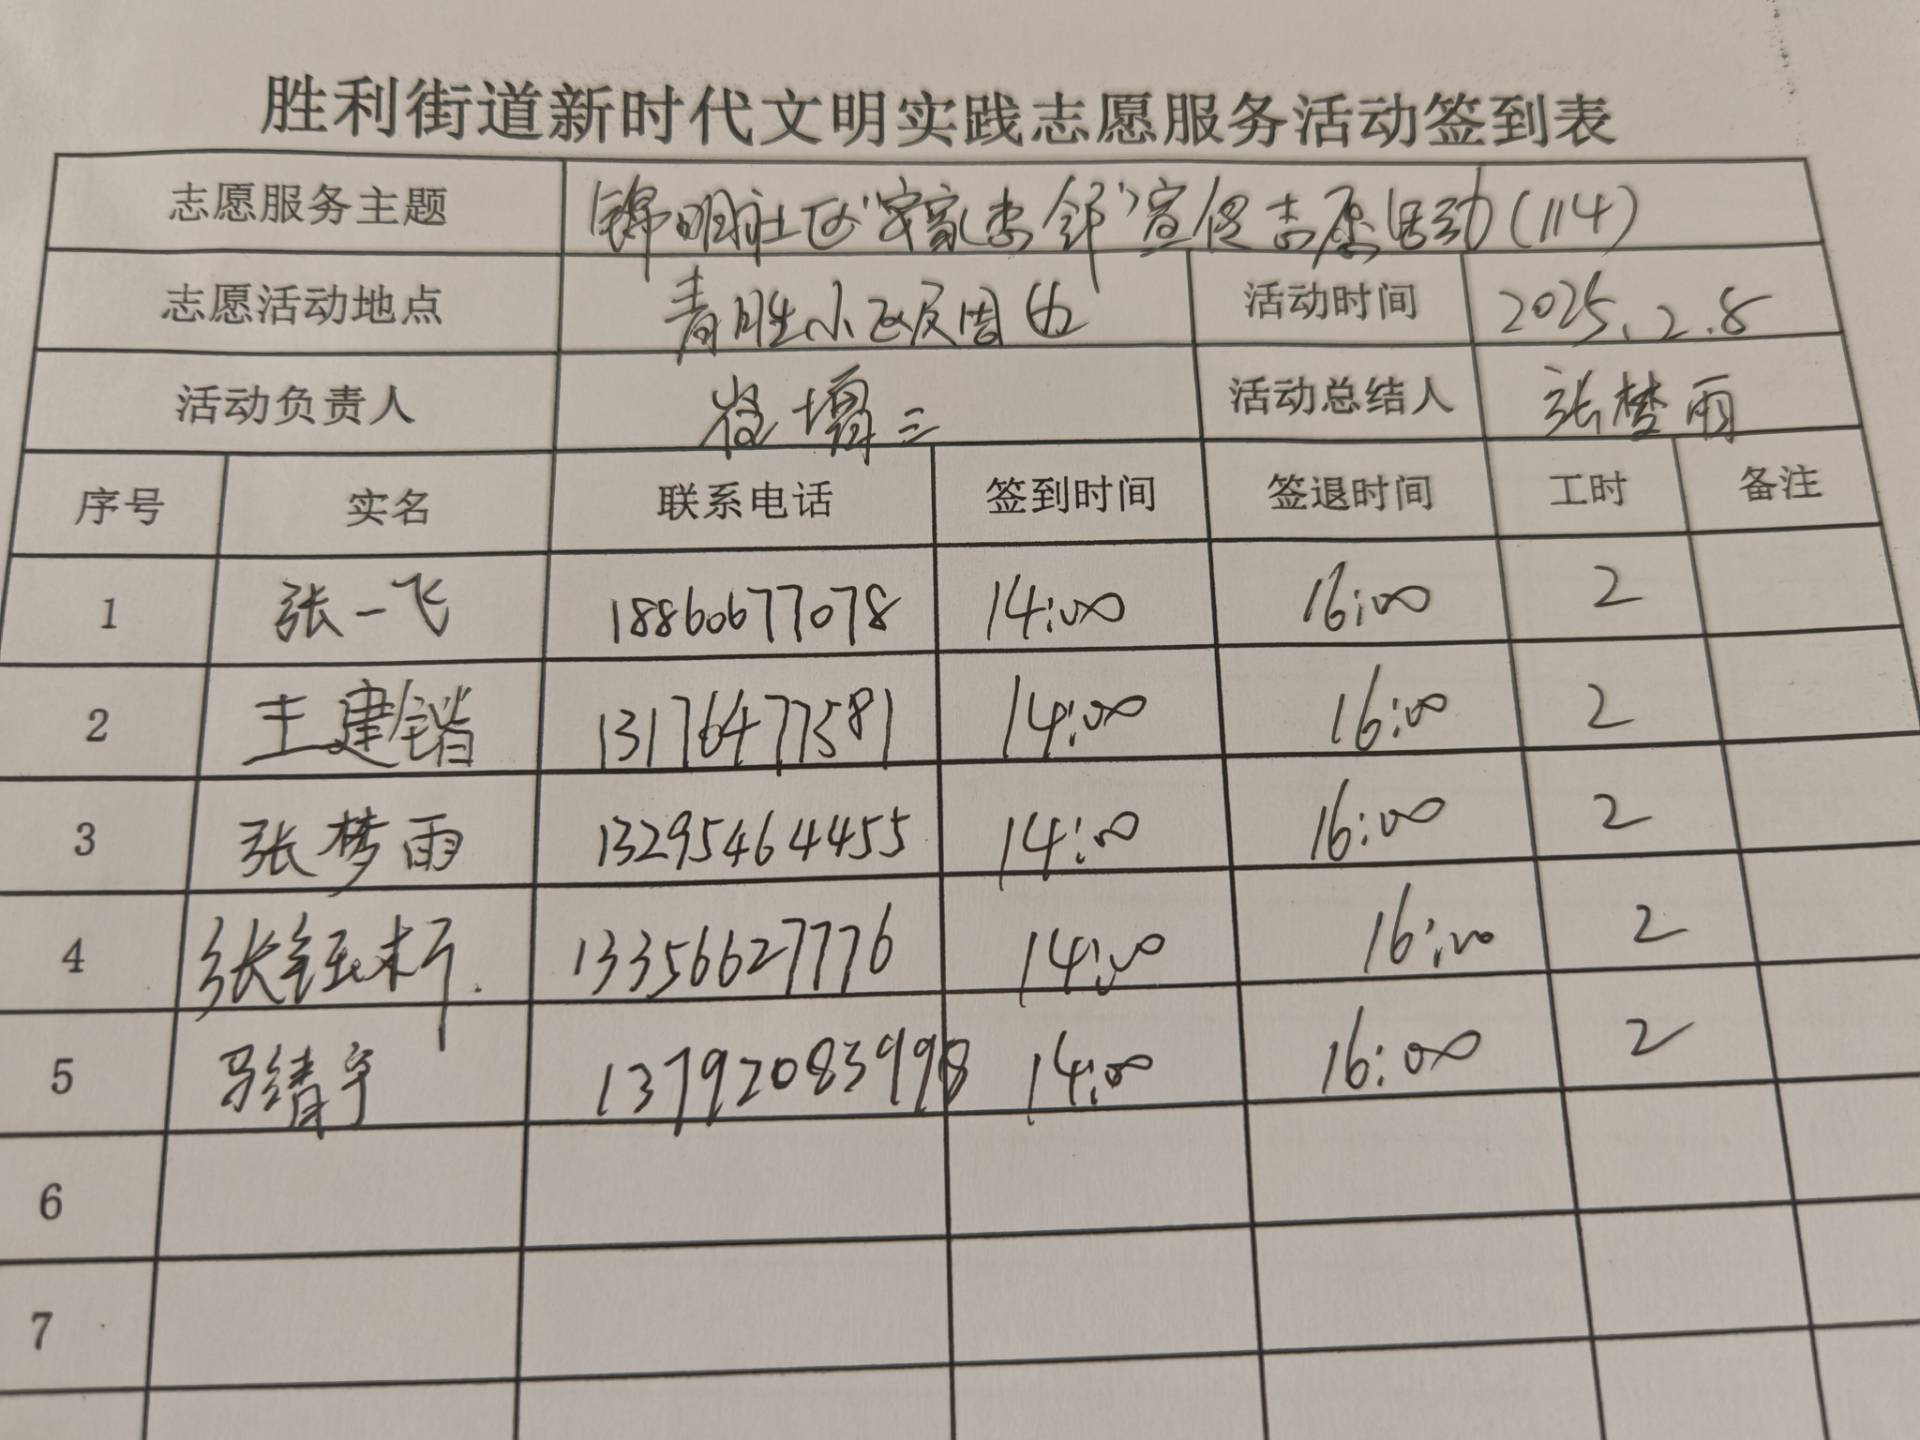 胜利街道新时代文明实践志愿服务活动签到表
志愿服务主题 锦明社区"家 邻"宣 志愿活动(114)
志愿活动地点 青胜小区及周边 活动时间 2025.2.8
活动负责人 活动总结人 张梦雨
序号 实名 联系电话 签到时间 签退时间 工时 备注
1 张一飞 18860677078 14:00 16:00 2
2 王建锴 13176477581 14:00 16:00 2
3 张梦雨 13295464455 14:00 16:00 2
4 张钰 13356627776 14:00 16:00 2
5 马绪宇 13792083998 14:00 16:00 2
6
7